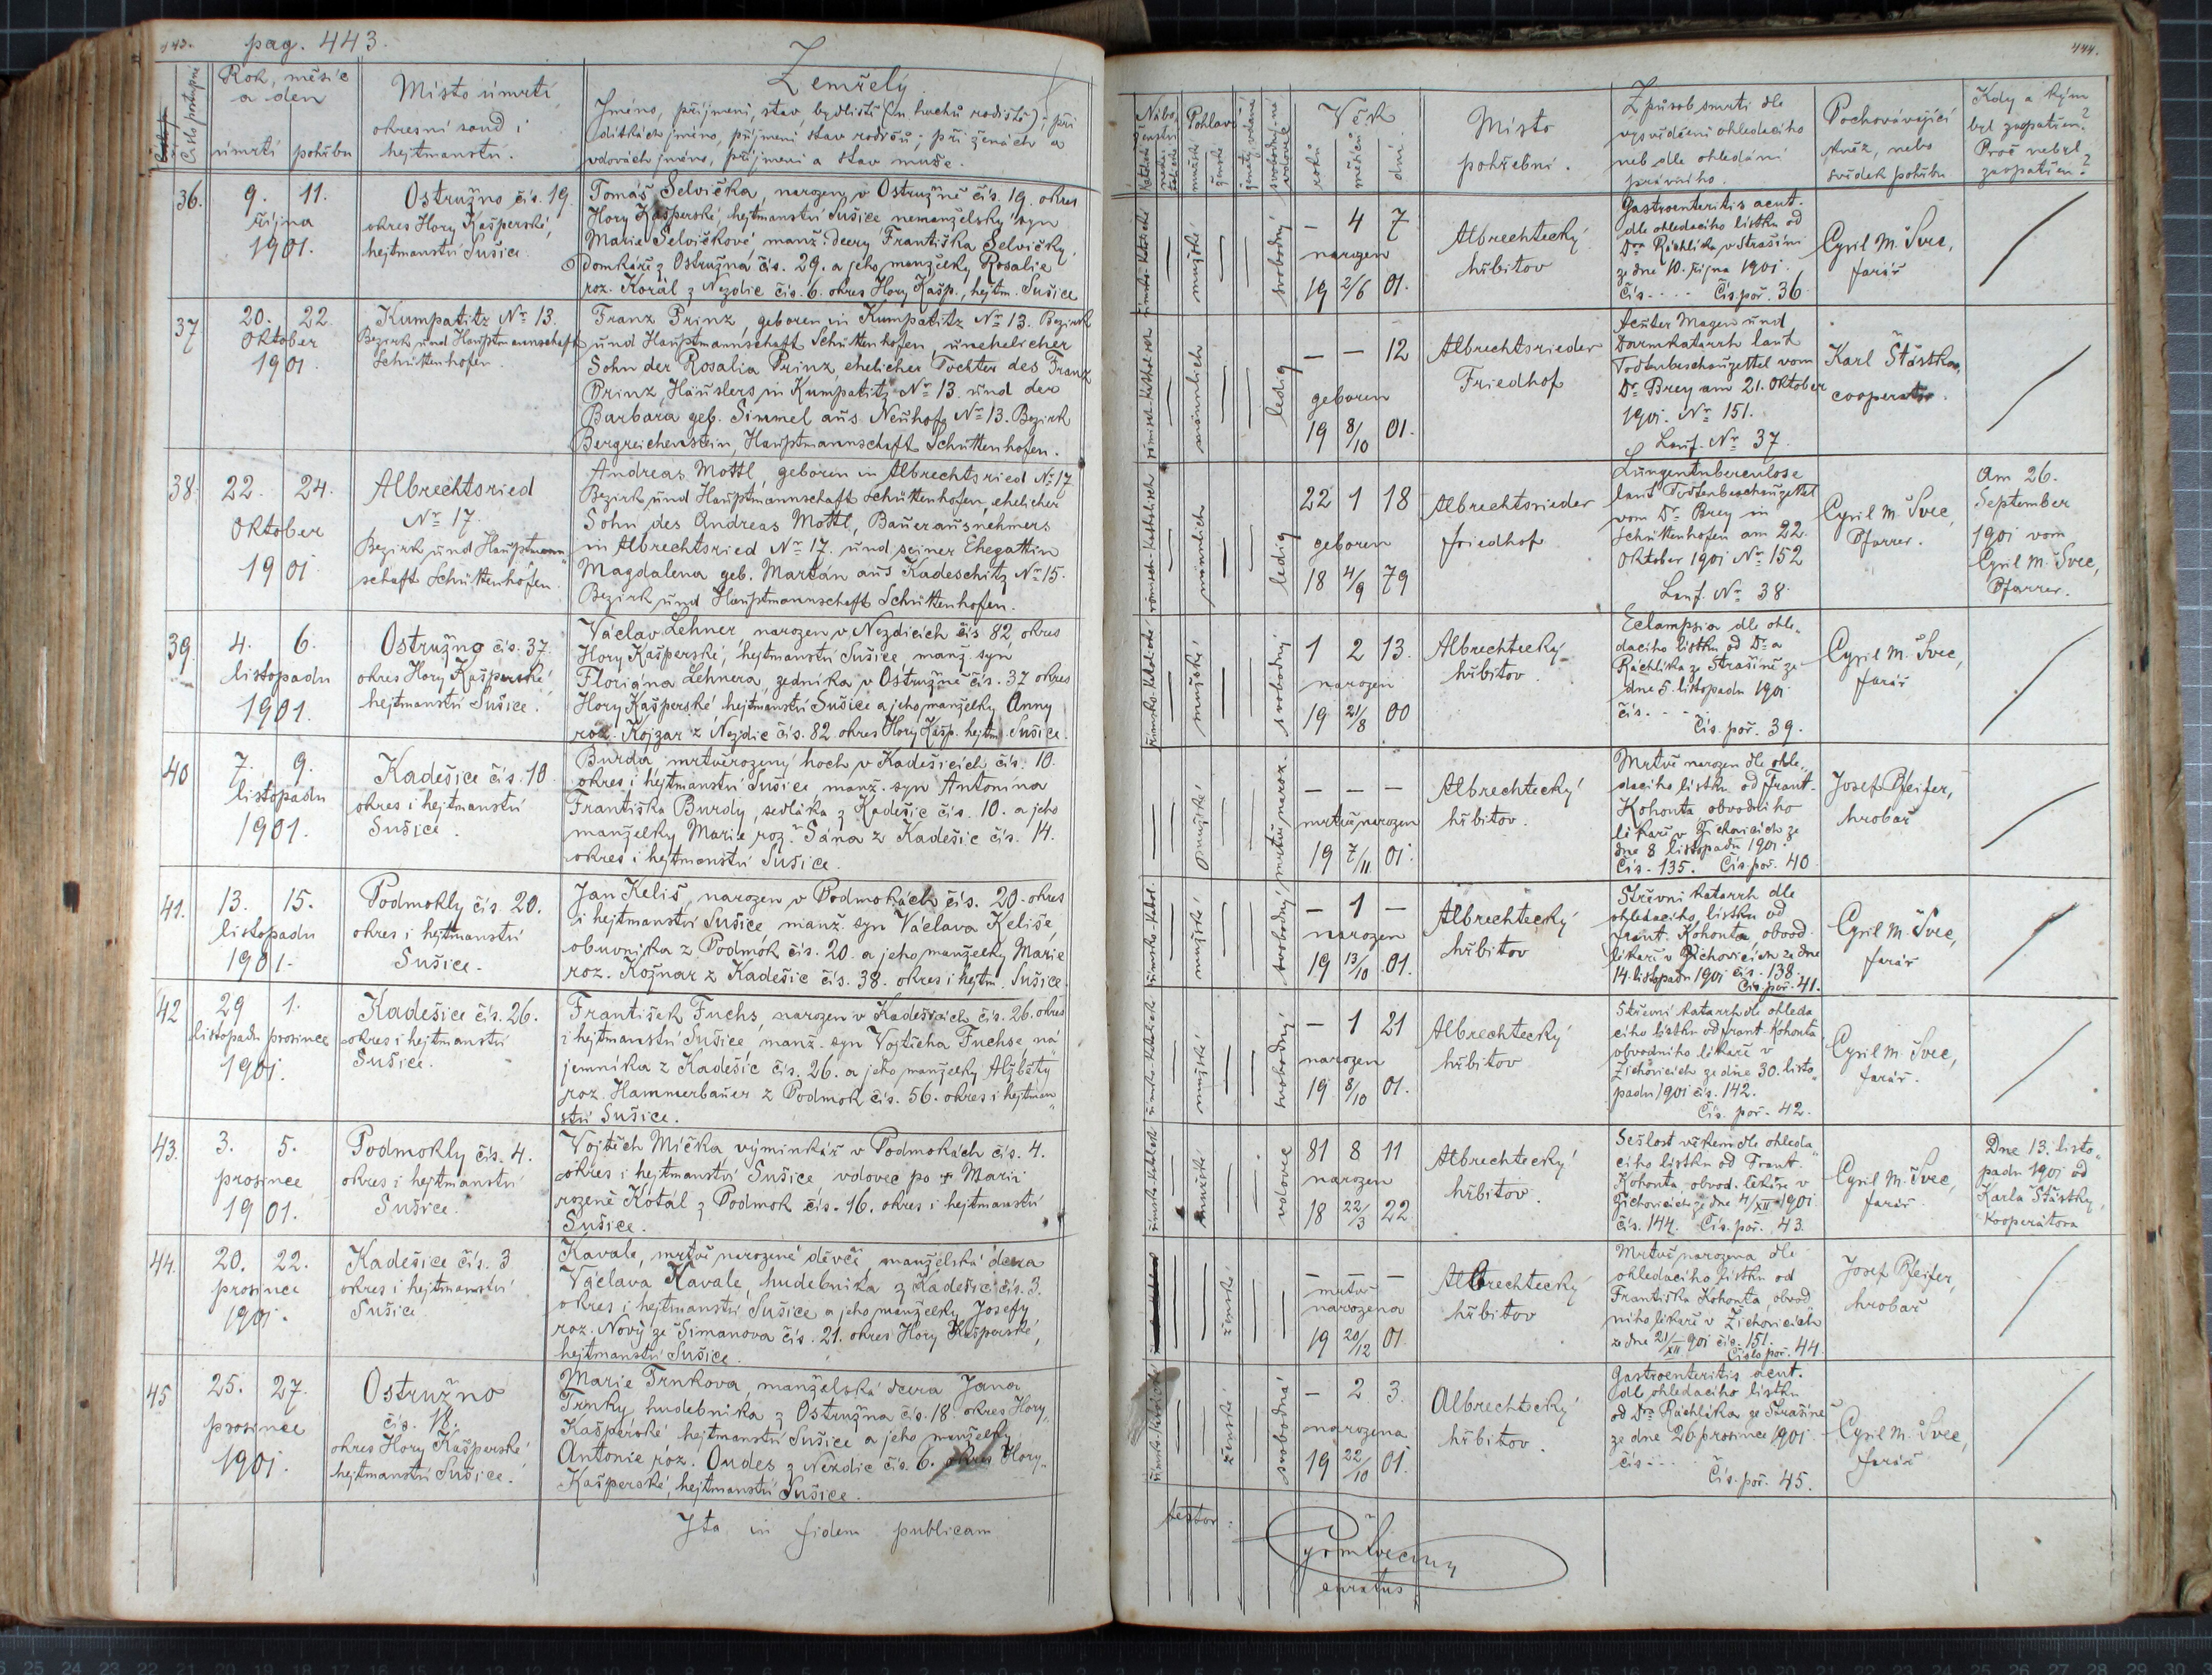 443.
pag. 443.
Číslo postupné
Rok, měsíc
a den
úmrtí
pohřbu
Místo úmrtí,
okresní soud i
hejtmanství.
Zemřelý
Jméno, příjmení, stav, bydliště (u hochů rodiště); při
dítkách jméno, příjmení stav rodičů; při ženách a
vdovách jméno, příjmení a stav muže.
36.
9. 11.
října
1901.
Ostružno čís. 19.
okres Hory Kašperské,
hejtmanství Sušice
Tomáš Selvička, narozen v Ostružně čís. 19. okres
Hory Kašperské, hejtmanství Sušice nemanželský syn
Marie Selvičkové, manž. dcery Františka Selvičky,
domkáře z Ostružna čís. 29. a jeho manželky Rosalie
roz. Korál z Nezdic čís. 6. okres Hory Kašp., hejtm. Sušice
37
20. 22
Oktober
1901.
Kumpatitz Nr. 13.
Bezirk und Hauptmannschaft
Schüttenhofen.
Franz Prinz, geboren in Kumpatitz Nr. 13. Bezirk
und Hauptmannschaft Schüttenhofen, unehelicher
Sohn der Rosalia Prinz, ehelicher Tochter des Franz
Prinz, Häuslers in Kumpatitz Nr. 13. und der
Barbara geb. Simmel aus Neuhof Nr. 13. Bezirk
Bergreichenstein, Hauptmannschaft Schüttenhofen.
38.
22. 24.
Oktober
1901
Albrechtsried
Nr. 17.
Bezirk und Hauptmann„
schaft Schüttenhofen.
Andreas Mottl, geboren in Albrechtsried Nr. 17
Bezirk und Hauptmannschaft Schüttenhofen, ehelicher
Sohn des Andreas Mottl, Bauerausnehmers
in Albrechtsried Nr. 17. und seiner Ehegattin
Magdalena geb. Martán aus Kadeschitz Nr. 15.
Bezirk und Hauptmannschaft Schüttenhofen.
39.
4. 6.
listopadu
1901.
Ostružno čís. 37.
okres Hory Kašperské,
hejtmanství Sušice.
Václav Lehner, narozen v Nezdicích čís 82 okres
Hory Kašperské, hejtmanství Sušice, manž. syn
Floriana Lehnera, zedníka v Ostružně čís. 37 okres
Hory Kašperské hejtmanství Sušice a jeho manželky Anny
roz. Kojzar z Nezdic čís. 82. okres Hory Kašp. hejtm. Sušice.
40
7. 9.
listopadu
1901.
Kadešice čís. 10
okres i hejtmanství
Sušice.
Burda, mrtvěrozený hoch v Kadešicích čís. 10.
okres i hejtmanství Sušice, manž. syn Antonína
Františka Burdy, sedláka z Kadešic čís. 10. a jeho
manželky Marie roz. Sána z Kadešic čís. 14.
okres i hejtmanství Sušice.
41.
13. 15.
listopadu
1901.
Podmokly čís. 20.
okres i hejtmanství
Sušice.
Jan Keliš, narozen v Podmokách čís. 20. okres
i hejtmanství Sušice manž. syn Václava Keliše,
obuvníka z Podmok čís. 20. a jeho manželky Marie
roz. Kožnar z Kadešic čís. 38. okres i hejtm. Sušice.
42
29 1.
listopadu prosince
1901.
Kadešice čís. 26.
okres i hejtmanství
Sušice.
František Fuchs, narozen v Kadešicích čís. 26. okres
i hejtmanství Sušice, manž. syn Vojtěcha Fuchse ná„
jemníka z Kadešic čís. 26. a jeho manželky Alžběty
roz. Hammerbauer z Podmok čís. 56. okres i hejtman„
ství Sušice.
43.
3. 5.
prosince
1901.
Podmokly čís. 4.
okres i hejtmanství
Sušice.
Vojtěch Mička, výminkář v Podmokách čís. 4.
okres i hejtmanství Sušice, vdovec po † Marii
rozené Kotál z Podmok čís. 16. okres i hejtmanství
Sušice.
44.
20. 22.
prosince
1901.
Kadešice čís. 3
okres i hejtmanství
Sušice
Kavale, mrtvě narozené děvče, manželská dcera
Václava Kavale, hudebníka z Kadešic čís. 3.
okres i hejtmanství Sušice a jeho manželky Josefy
roz. Nový ze Simanova čís. 21. okres Hory Kašperské,
hejtmanství Sušice.
45
25. 27.
prosince
1901.
Ostružno
čís. 18.
okres Hory Kašperské
hejtmanství Sušice.
Marie Trnkova, manželská dcera Jana
Trnky hudebníka z Ostružna čís. 18. okres Hory„
Kašperské hejtmanství Sušice a jeho manželky
Antonie roz. Oudes z Nezdic čís. 6. okres Hory„
Kašperské, hejtmanství Sušice.
Ita in fidem publicam
444.
Nábo„
ženství
Pohlaví
mužské
ženské
Věk
roků
měsíců
dní
Místo
pohřební.
Způsob smrti dle
vysvědčení ohledacího
neb dle ohledání
právního.
Pochovávající
kněz, nebo
svědek pohřbu
Kdy a kým
byl zaopatřen?
Proč nebyl
zaopatřen?
římsko-katolické
mužské
svobodný
– 4 7
narozen
19 2/6 01.
Albrechtecký
hřbitov
Gastroenteritis acut.
dle ohledacího lístku od
Dra Ráchlíka v Strašíni
ze dne 10. října 1901.
čís. . . . . Čís. poř. 36
Cyril M. Švec,
farář
römisch-katholisch
männlich
ledig
– – 12
geboren
19 8/10 01.
Albrechtsrieder
Friedhof
Acuter Magen und
Darmkatarrh laut
Todtenbeschauzettel vom
Dr. Brey am 21. Oktober
1901. Nr. 151.
Lauf. Nr. 37.
Karl Šťástka,
cooperator.
römisch-katholisch
männlich
ledig
22 1 18
geboren
18 4/9 79
Albrechtsrieder
friedhof
Lungentuberculose
laut Todtenbeschauzettel
vom Dr. Brey in
Schüttenhofen am 22.
Oktober 1901 Nr. 152
Lauf. Nr. 38.
Cyril M. Švec,
Pfarrer.
Am 26.
September
1901 vom
Cyril M. Švec,
Pfarrer.
římsko-katolické
mužské
svobodný
1 2 13.
narozen
19 21/8 00
Albrechtecký
hřbitov.
Eclampsia dle ohle„
dacího lístku od Dr.a
Ráchlíka ze Strašíně ze
dne 5. listopadu 1901
čís. . . .
Čís. poř. 39.
Cyril M. Švec,
farář
mužské
mrtvě naroz.
– – –
mrtvě narozen
19 7/11 01.
Albrechtecký
hřbitov.
Mrtvě narozen dle ohle„
dacího lístku od Frant.
Kohouta obvodního
lékaře v Žichovicích ze
dne 8 listopadu 1901.
Čís. 135. Čís. poř. 40
Josef Pfeifer,
hrobař
římsko-katol.
mužské
svobodný
– 1 –
narozen
19 13/10 01.
Albrechtecký
hřbitov
Střevní katarrh dle
ohledacího lístku od
Frant. Kohouta obvod.
lékaře v Žichovicích ze dne
14. listopadu 1901 čís. 138.
Čís. poř. 41.
Cyril M. Švec,
farář
mužské
svobodný
– 1 21
narozen
19 8/10 01.
Albrechtecký
hřbitov
Střevní katarrh dle ohleda„
cího lístku od Frant. Kohouta
obvodního lékaře v
Žichovicích ze dne 30. listo„
padu 1901 čís. 142.
Čís. poř. 42.
Cyril M. Švec,
farář.
mužské
vdovec
81 8 11
narozen
18 22/3 22
Albrechtecký
hřbitov.
Sešlost věkem dle ohleda„
cího lístku od Frant.
Kohouta obvod. lékaře v
Žichovicích ze dne 4/XII 1901
čís. 144. Čís. poř. 43.
Cyril M. Švec,
farář
Dne 13. listo„
padu 1901 od
Karla Šťástky,
kooperátora
ženské
– – –
mrtvě
narozena
19 20/12 01
Albrechtecký
hřbitov
Mrtvě narozena dle
ohledacího lístku od
Františka Kohouta, obvod
ního lékaře v Žichovicích
ze dne 21/XII 901 čís. 151.
Číslo poř. 44
Josef Pfeifer,
hrobař
ženské
svobodná
– 2 3.
narozena
19 22/10 01.
Albrechtecký
hřbitov.
Gastroenteritis acut.
dle ohledacího lístku
od Dra Ráchlíka ze Strašíně
ze dne 26 prosince 1901
čís. . . .
Čís. poř. 45.
Cyril M. Švec,
farář
testor.
curatus